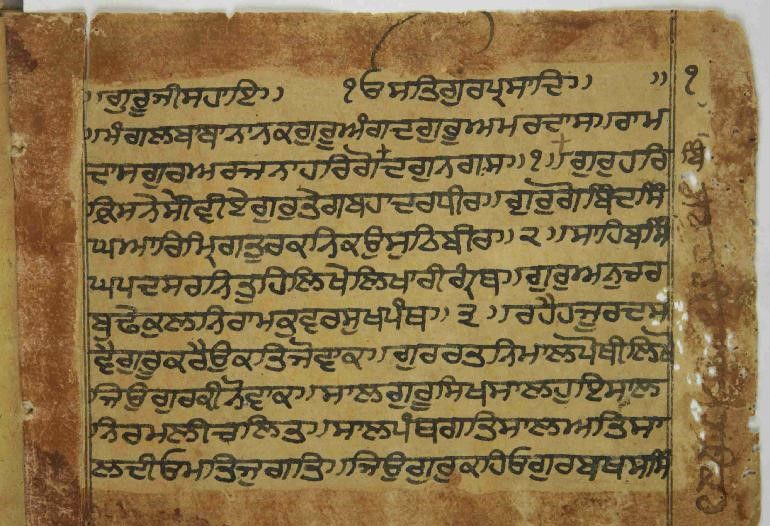 ॥ਗੁਰੂਜੀਸਹਾਇ॥ ੧ਓਸਤਿਗੁਰਪ੍ਰਸਾਦਿ॥ ॥ ੧
॥ਮੰਗਲਬਾਬਾਨਾਨਕਗੁਰੂਅੰਗਦਗੁਰੂਅਮਰਦਾਸ॥ਰਾਮ
ਦਾਸਗੁਰਅਰਜਨਾਹਰਿਗੋਂਦਗੁਨਰਾਸ॥੧॥ਗੁਰੁਹਰਿ
ਕ੍ਰਿਸਨੇਸੇਵੀਏਗੁਰੁਤੇਗਬਹਾਦਰਧੀਰ॥ਗੁਰੁਗੋਬਿੰਦਸਿੰ
ਘਆਰਿਮ੍ਰਿਗਤੁਰਕਨਿਕਉਸੁਠਿਬੀਰ॥੨॥ਸਾਹਿਬਸਿੰ
ਘਪਦਸਰਨਿਤੁਹਿਲਿਖੋਲਿਖਾਰੀਗ੍ਰੰਥ॥ਗੁਰੁਅਨੁਚਰ
ਬੁਢੇਕੁਲਨਿਰਾਮਕੁਵਰਸੁਖਪੰਥ॥੩॥ਰਹੈਹਜੂਰਦਸ
ਵੈਗੁਰੂਕਰੈਉਕਤਿਜੋਵਾਕ॥ਗੁਰਰਤਨਿਮਾਲਪੋਥੀਲਿਖੋ
ਜਿਉਗੁਰਕੀਨੋਵਾਕ॥ਸਾਲਗੁਰੂਸਿਖਸਾਲਹੁਇਸਾਲ
ਨਿਰਮਲੀਚਲਿਤ॥ਸਾਲਪੰਥਗਤਿਸਾਲਮਤਿਸਾ
ਲਦੀਓਮਤਿਜੁਗਤਿ॥ਜਿਉਗੁਰੁਕਹਿਓਗੁਰਬਖਸਸਿੰ